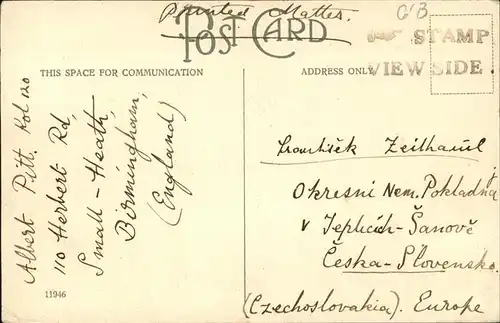 Printed Matter.
GB
POST CARD
STAMP
VIEW SIDE.
THIS SPACE FOR COMMUNICATION
ADDRESS ONLY
Albert Pitt.
110 Herbert Rd,
Small-Heath,
Birmingham,
(England)
František Zeithaml
Okresní Nem. Pokladna
v Teplicích-Šanově
Česka-Slovensko
(Czechoslovakia). Europe
11946